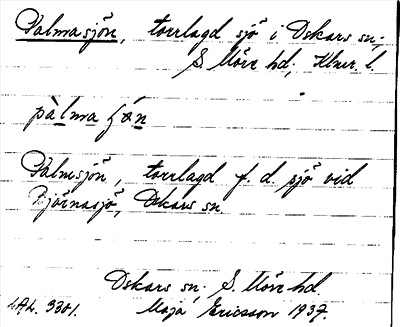 Palmasjön, torrlagd sjö i Oskars sn,
S. Möre hd, Klmr l.
pàlma ʃǿn
Palmsjön, torrlagd f. d. sjö vid
Björnasjö, Oskars sn
Oskars sn. S. Möre hd.
LAL. 3301. Maja Ericsson 1937.